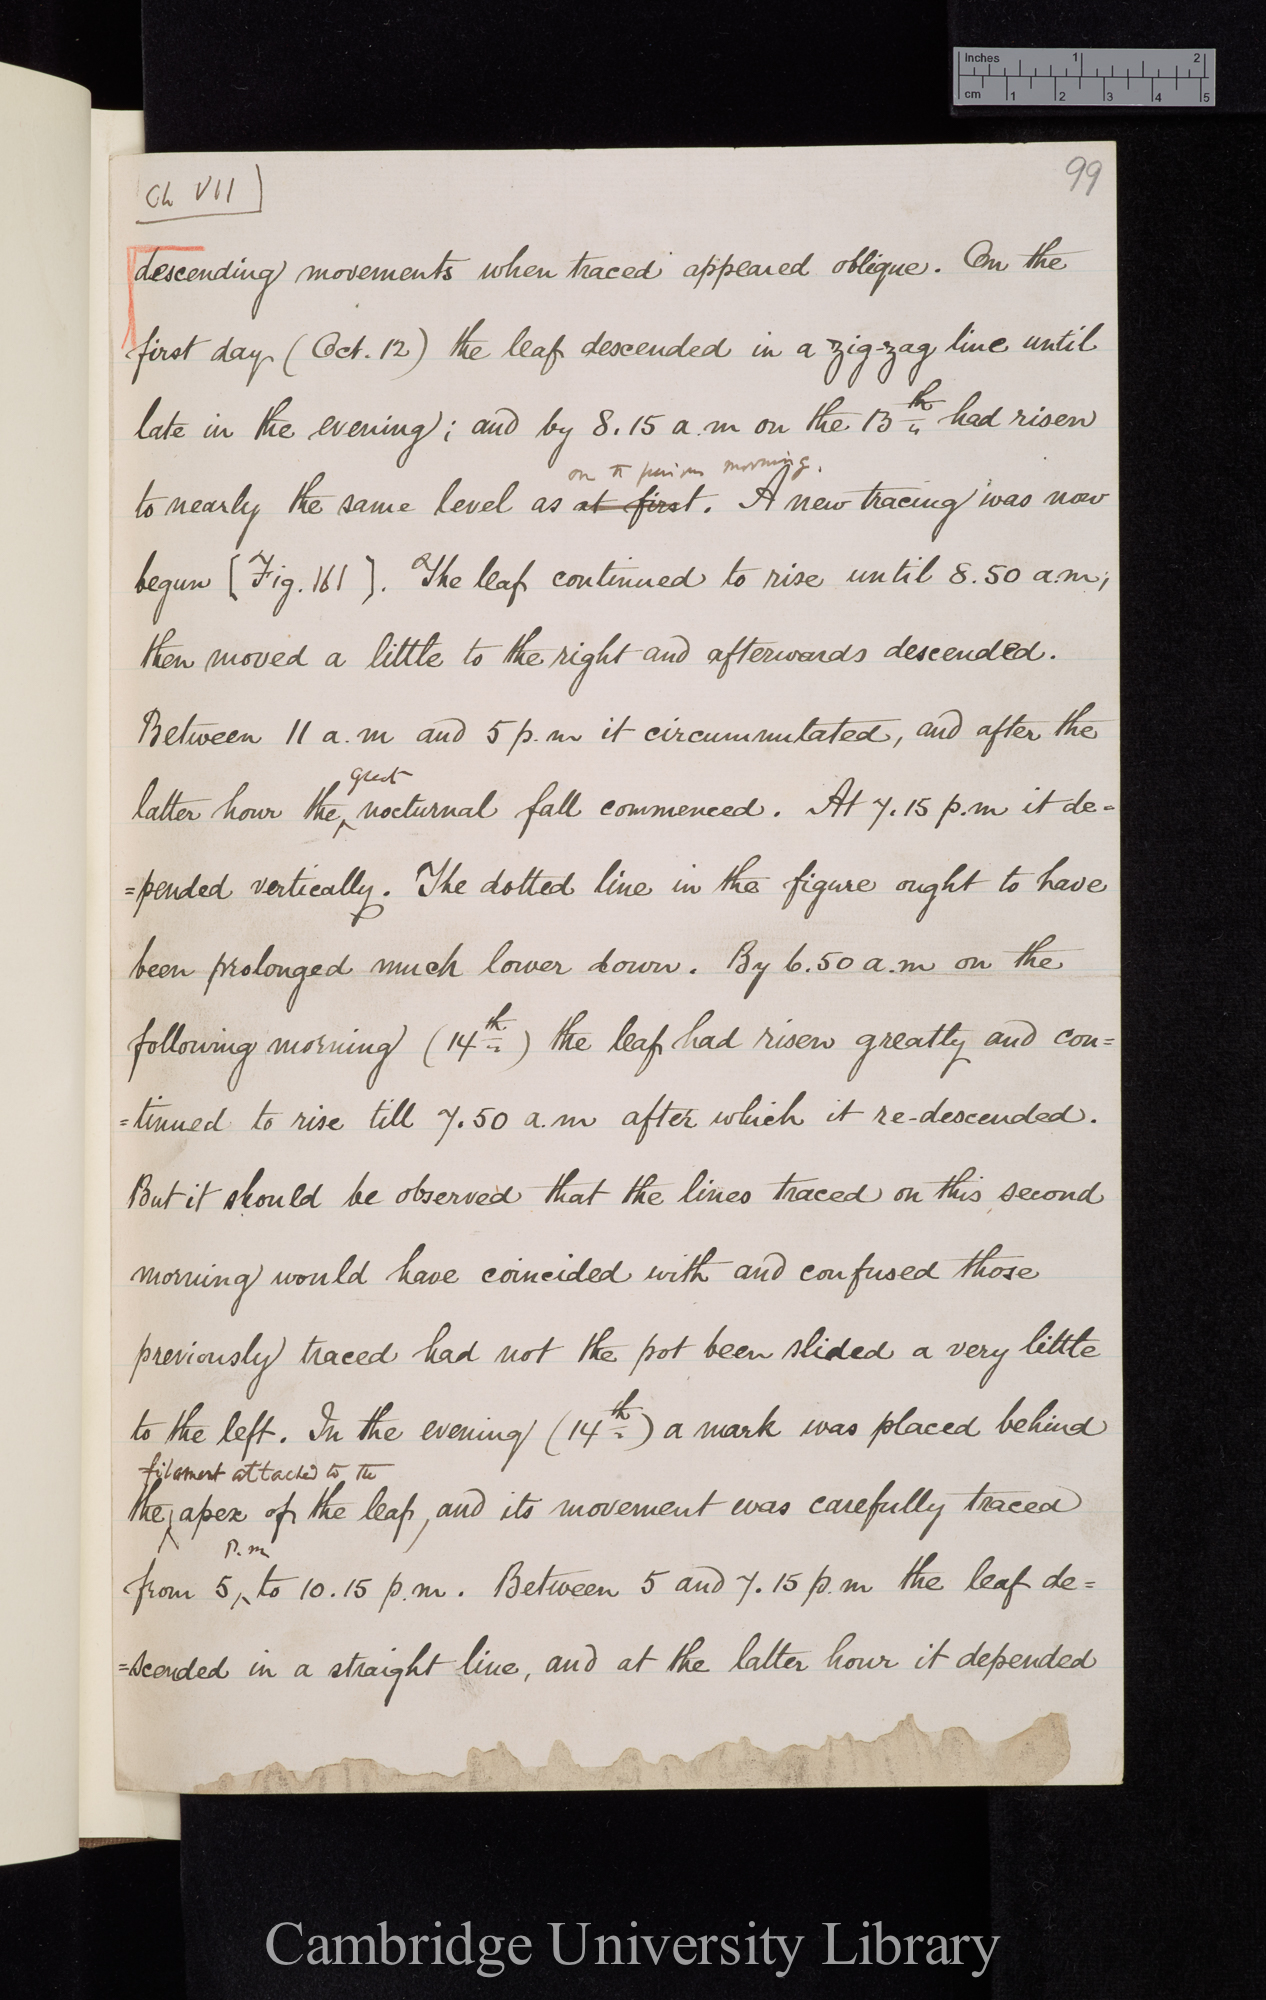 Inches 1 2
cm 1 2 3 4 5
99
Ch VII
descending movements when traced appeared oblique. On the
first day (Oct. 12) the leaf descended in a zig-zag line until
late in the evening; and by 8.15 a.m on the 13th had risen
on the previous morning.
to nearly the same level as at first. A new tracing was now
begun [Fig. 161]. The leaf continued to rise until 8.50 a.m;
then moved a little to the right and afterwards descended.
Between 11 a.m and 5 p.m it circumnutated, and after the
great
latter hour the nocturnal fall commenced. At 7.15 p.m it de=
=pended vertically. The dotted line in the figure ought to have
been prolonged much lower down. By 6.50 a.m on the
following morning (14th) the leaf had risen greatly and con=
=tinued to rise till 7.50 a.m after which it re-descended.
But it should be observed that the lines traced on this second
morning would have coincided with and confused those
previously traced had not the pot been slided a very little
to the left. In the evening (14th) a mark was placed behind
filament attached to the
the apex of the leaf, and its movement was carefully traced
p.m
from 5 to 10.15 p.m. Between 5 and 7.15 p.m the leaf de=
=scended in a straight line, and at the latter hour it depended
Cambridge University Library